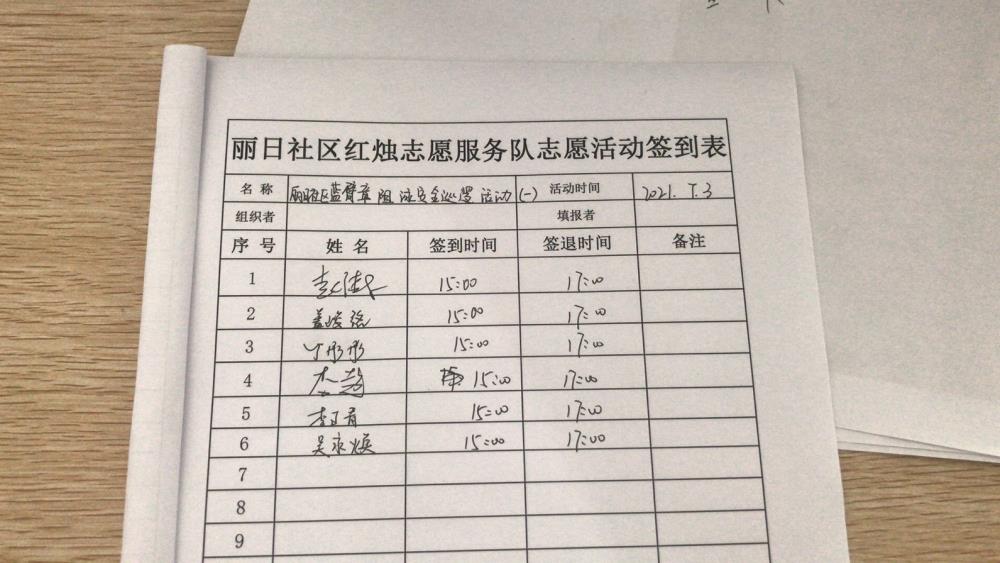 丽日社区红烛志愿服务队志愿活动签到表
名 称 丽日社区蓝臂章 阻 泳安全巡逻 活动(一) 活动时间 2021. 7.3
组织者 填报者
序 号 姓 名 签到时间 签退时间 备注
1 15:00 17:00
2 15:00 17:00
3 丁彤彤 15:00 17:00
4 15:00 17:00
5 15:00 17:00
6 吴永焕 15:00 17:00
7
8
9